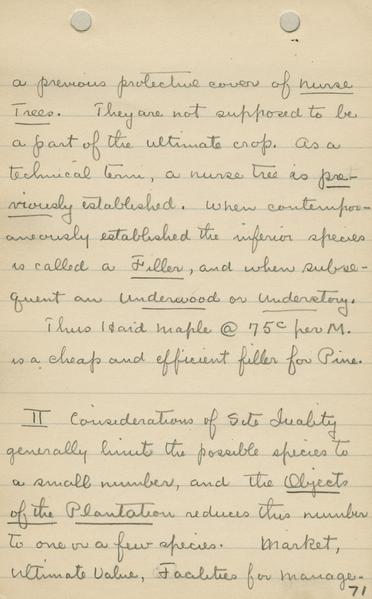 a previous protective cover of nurse
Trees. They are not supposed to be
a part of the ultimate crop. As a
technical term, a nurse tree is pre-
viously established. When contempor-
aneously established the inferior species
is called a Filler, and when subse-
quent an Underwood or Understory.
Thus Hard Maple @ 75c per M.
is a cheap and efficient filler for Pine.
II Considerations of Site Quality
generally limits the possible species to
a small number, and the Objects
of the Plantation reduces this number
to one or a few species. Market,
Ultimate Value, Facilities for manage-
71